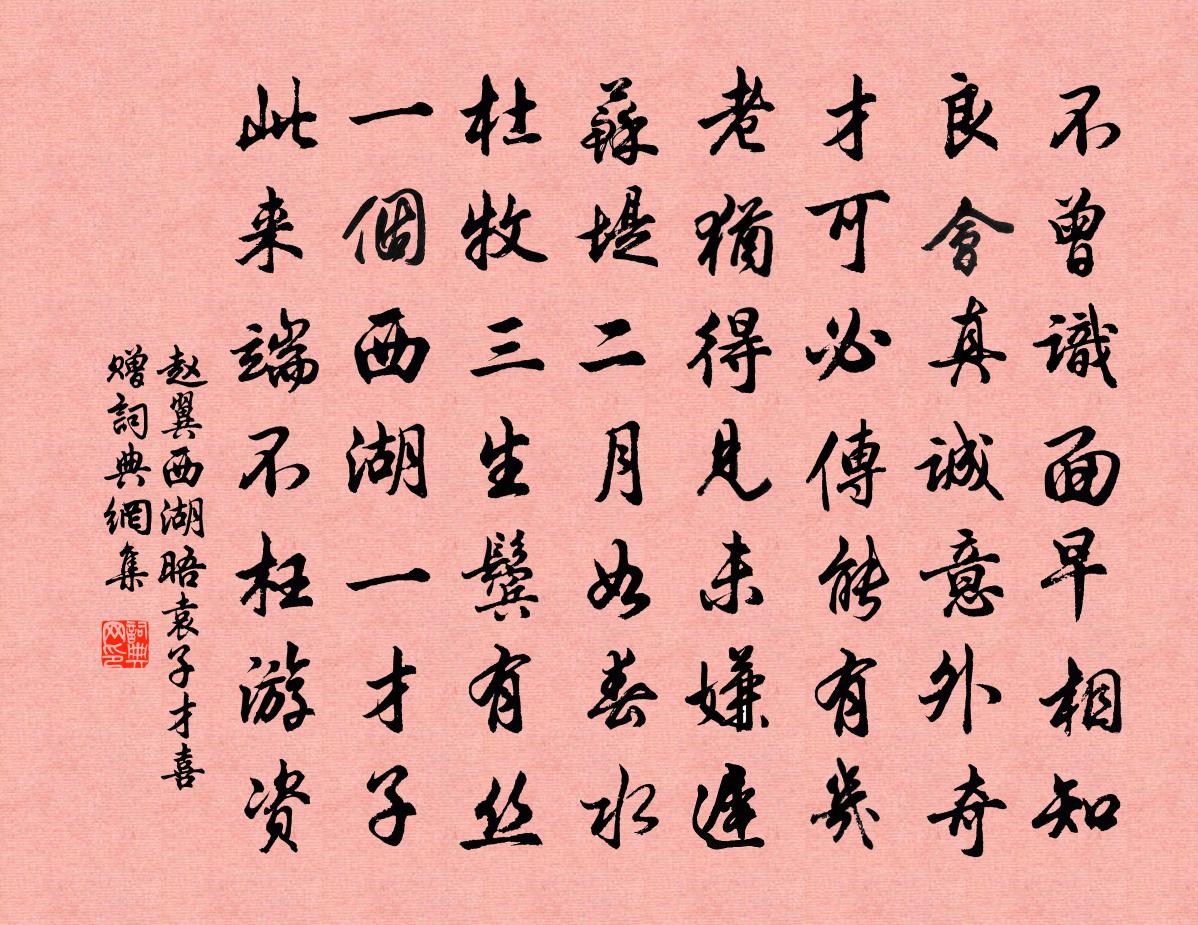 不曾識面早相知
良會真誠意外奇
才可必傳能有幾
老猶得見未嫌遲
蘇堤二月如春水
杜牧三生鬢有丝
一個西湖一才子
此来端不枉游资
赵翼西湖晤袁子才喜
赠詞典網集
詞典网印